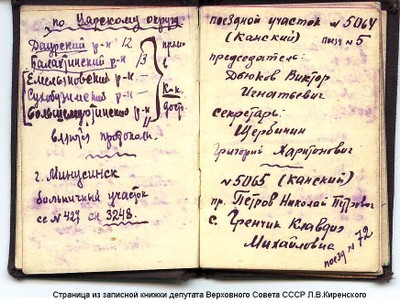 по Царскому округу
Даурский р-н 12
Балахтинский р-н 13
Емельяновский р-н —
Сухобузимский р-н —
Большемуртинский р-н "
в К-к.
взято протокол.
г. Минусинск
больничный участок
се № 427 сн 3248.
поездной участок № 5064
(Канский) поезд № 5
председатель
Дюков Виктор
Игнатьевич
секретарь:
Щербинин
Григорий Харитонович
№ 5065 (Канский)
пр. Петров Николай Петрович
с. Гренчик Клавдия
Михайловна
поезд № 72
Страница из записной книжки депутата Верховного Совета СССР Л.В.Киренского